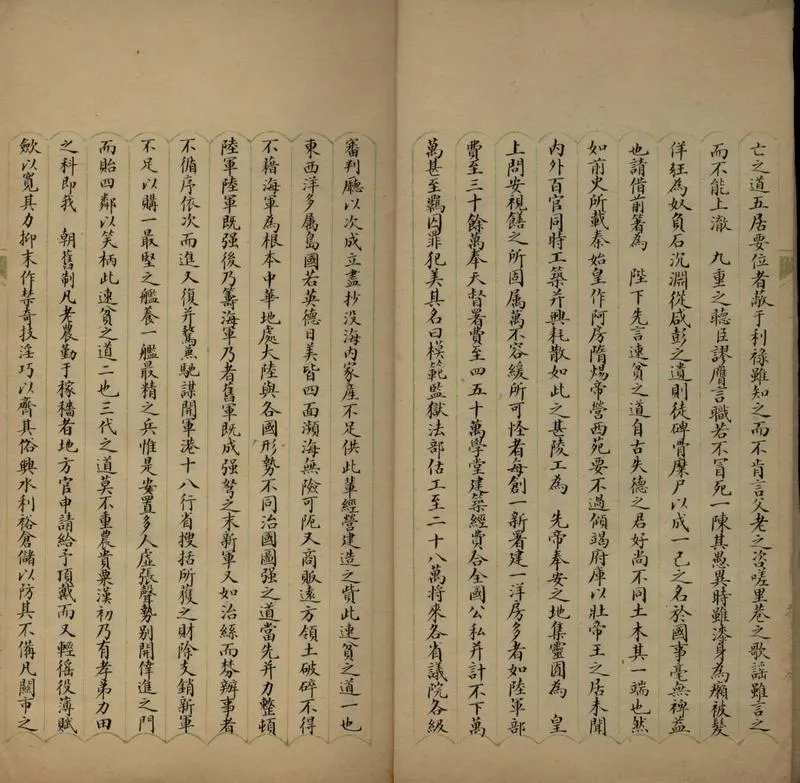 亡之道五居要位者蔽于利祿雖知之而不肯言父老之咨嗟里巷之歌謡雖言之
而不能上澈　九重之聽臣謬膺言職若不冒死一陳其愚異時雖漆身為癩被髮
佯狂為奴負石沉淵從咸彭之遺則徒碎骨糜尸以成一己之名於國事毫無裨益
也請借前箸為　陛下先言速貧之道自古失德之君好尚不同土木其一端也然
如前史所載秦始皇作阿房隋煬帝營西苑要不過傾竭府庫以壯帝王之居未聞
内外百官同時工築并興耗散如此之甚陵工為　先帝奉安之地集靈囿為　皇
上問安視饍之所固属萬不容緩所可怪者每創一新署建一洋房多者如陸軍部
費至三十餘萬奉天督署費至四五十萬學堂建築經費合全國公私并計不下萬
萬甚至羈囚罪犯美其名曰模範監獄法部估工至二十八萬將來各省議院各級
審判廳以次成立盡抄没海内家産不足供此輩經營建造之貲此速貧之道一也
東西洋多属島國若英德日美皆四面瀕海無險可阨又商販遠方領土破碎不得
不藉海軍為根本中華地處大陸與各國形勢不同治國圖强之道當先并力整頓
陸軍陸軍既强後乃籌海軍乃者舊軍既成强弩之末新軍又如治絲而棼辦事者
不循序依次而進又復并騖兼馳謀開軍港十八行省搜括所獲之財除支銷新軍
不足以購一最堅之艦養一艦最精之兵惟是安置多人虚張聲勢别開倖進之門
而貽四鄰以笑柄此速貧之道二也三代之道莫不重農貴粟漢初乃有孝弟力田
之科即我　朝舊制凡老農勤于稼穡者地方官申請給予頂戴而又輕徭役薄賦
歛以寬其力抑末作禁奇技淫巧以齊其俗興水利裕倉儲以防其不備凡關市之